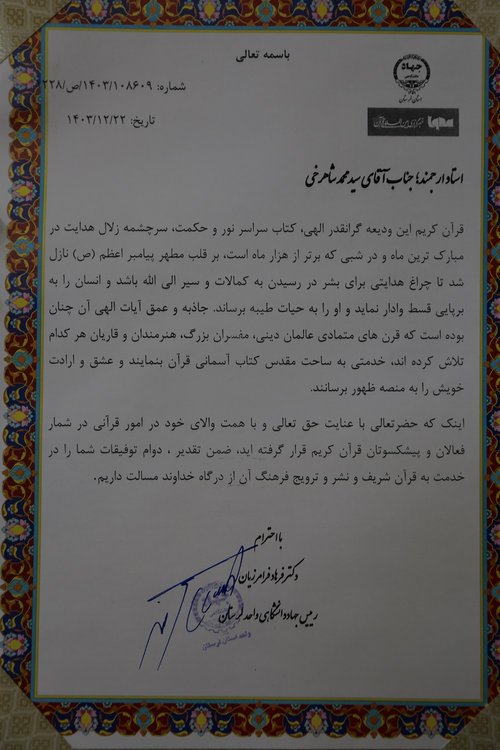 باسمه تعالی
جهاد
استان لرستان
شماره: ۱۴۰۳/۱۰۸۶۰۹/ص/۲۲۸
تاریخ: ۱۴۰۳/۱۲/۲۲
استاد ارجمند؛ جناب آقای سید محمد شاهرخی
قرآن کریم این ودیعه گرانقدر الهی، کتاب سراسر نور و حکمت، سرچشمه زلال هدایت در
مبارک ترین ماه و در شبی که برتر از هزار ماه است، بر قلب مطهر پیامبر اعظم (ص) نازل
شد تا چراغ هدایتی برای بشر در رسیدن به کمالات و سیر الی الله باشد و انسان را به
برپایی قسط وادار نماید و او را به حیات طیبه برساند. جاذبه و عمق آیات الهی آن چنان
بوده است که قرن های متمادی عالمان دینی، مفسران بزرگ، هنرمندان و قاریان هر کدام
تلاش کرده اند، خدمتی به ساحت مقدس کتاب آسمانی قرآن بنمایند و عشق و ارادت
خویش را به منصه ظهور برسانند.
اینک که حضرتعالی با عنایت حق تعالی و با همت والای خود در امور قرآنی در شمار
فعالان و پیشکسوتان قرآن کریم قرار گرفته اید، ضمن تقدیر ، دوام توفیقات شما را در
خدمت به قرآن شریف و نشر و ترویج فرهنگ آن از درگاه خداوند مسالت داریم.
با احترام
دکتر فرهاد فرامرزیان
رییس جهاددانشگاهی واحد لرستان
واحد استان لرستان